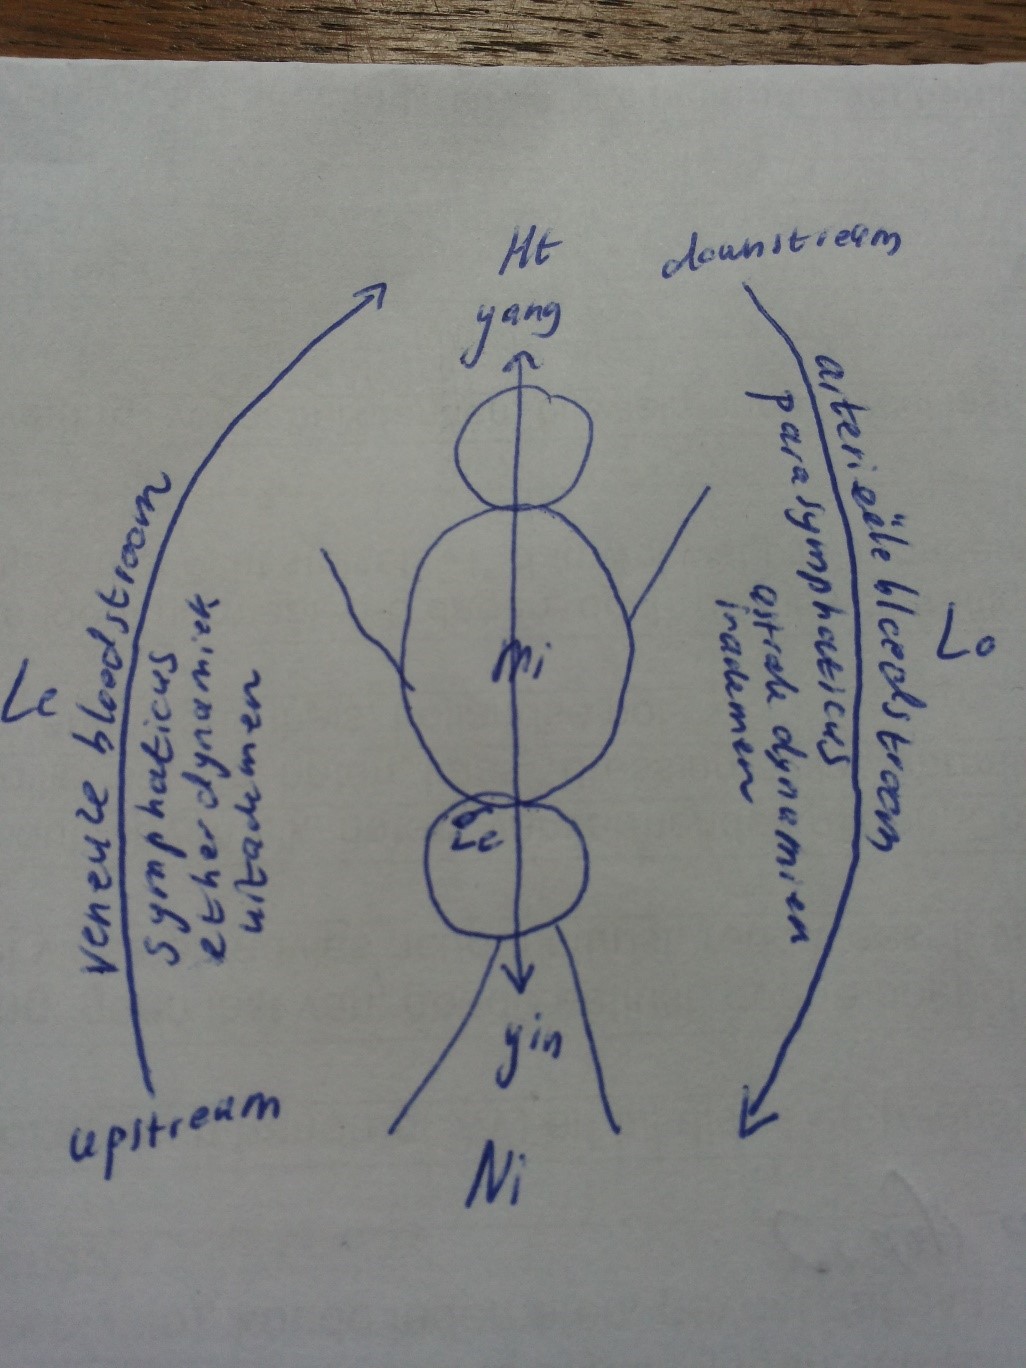 Ht
yang
downstream
veneuze bloedstroom
symphaticus
etherdynamiek
uitademen
arteriëële bloedstroom
parasymphaticus
astrale dynamiek
inademen
Lo
mi
yin
upstream
Ni